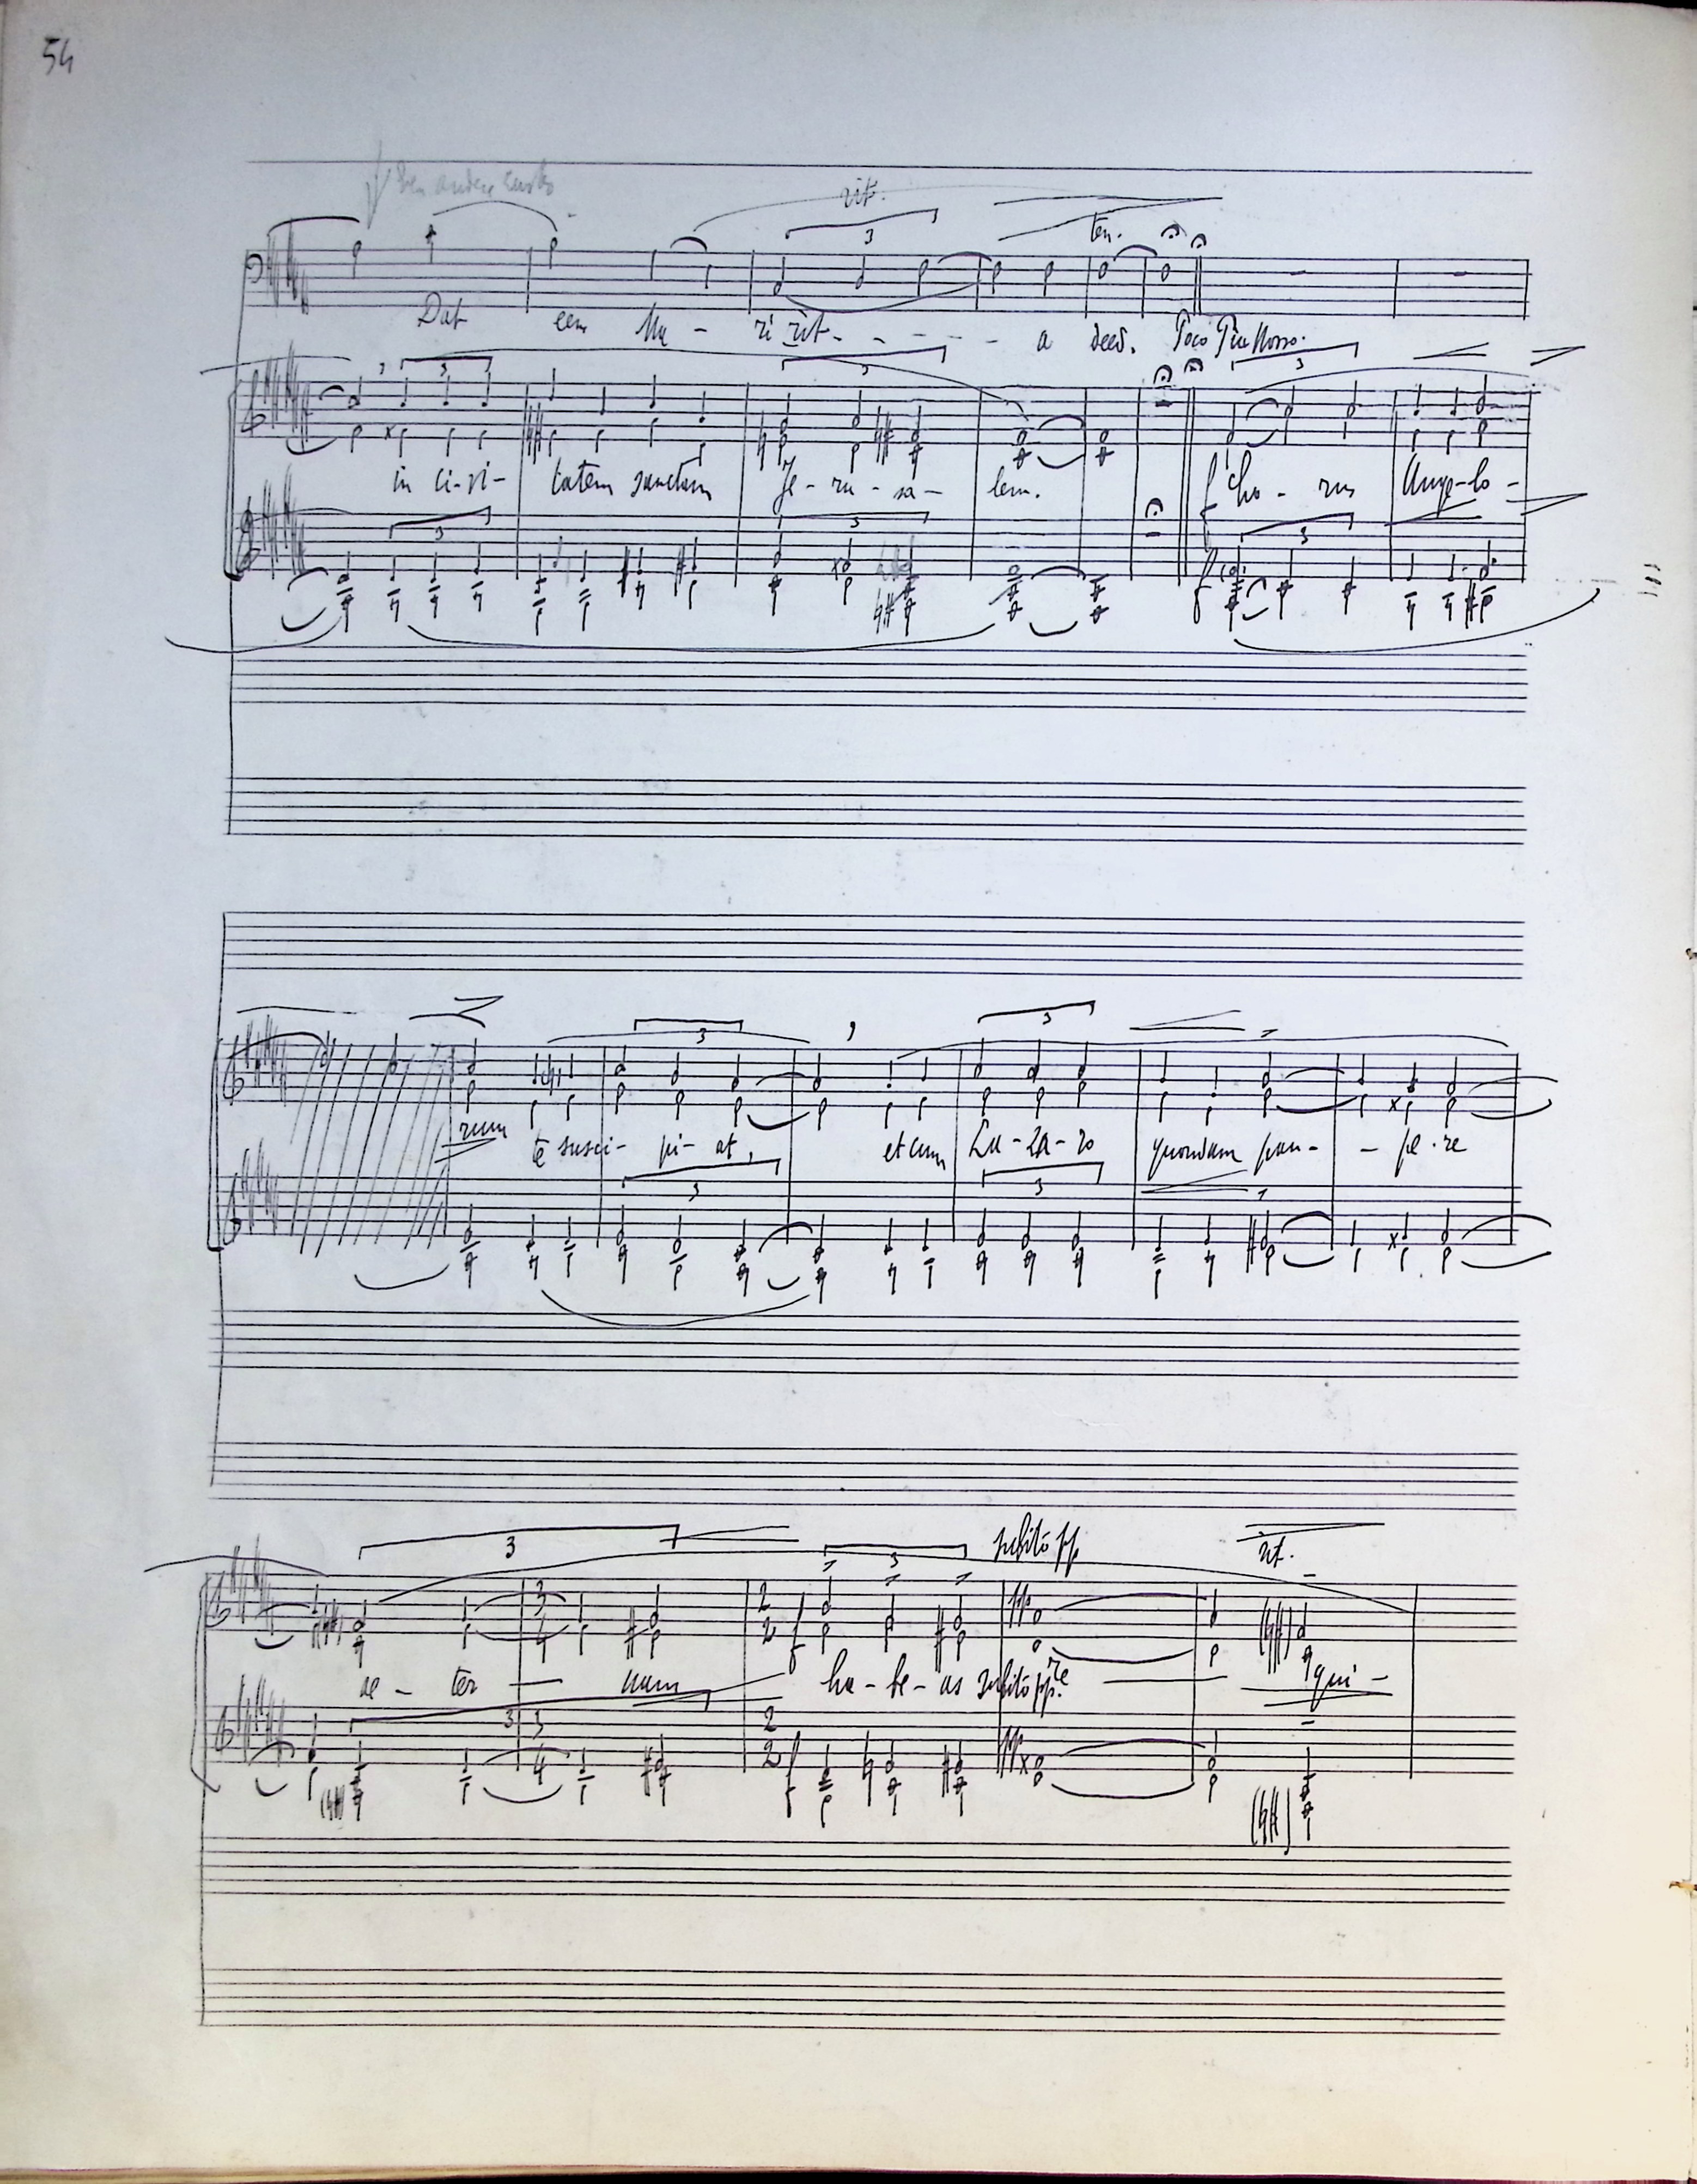 54
rit.
3
ten.
Dat een Ma - ri rit - - - - - a deed. Poco Più Mosso.
3 3 3
in ci-vi- tatem sanctam Je-ru-sa- lem. f cho-rus Ange-lo-
3 3 3 f
3 , 3
rum te susci- pi- at, et cum La-za-ro quondam pau- - pe-re
3 3
3 3 subito pp rit.
3 4 2 2 f pp
ae - ter — nam ha-be-as subito pp. re — qui-
3 3 4 2 2 f pp